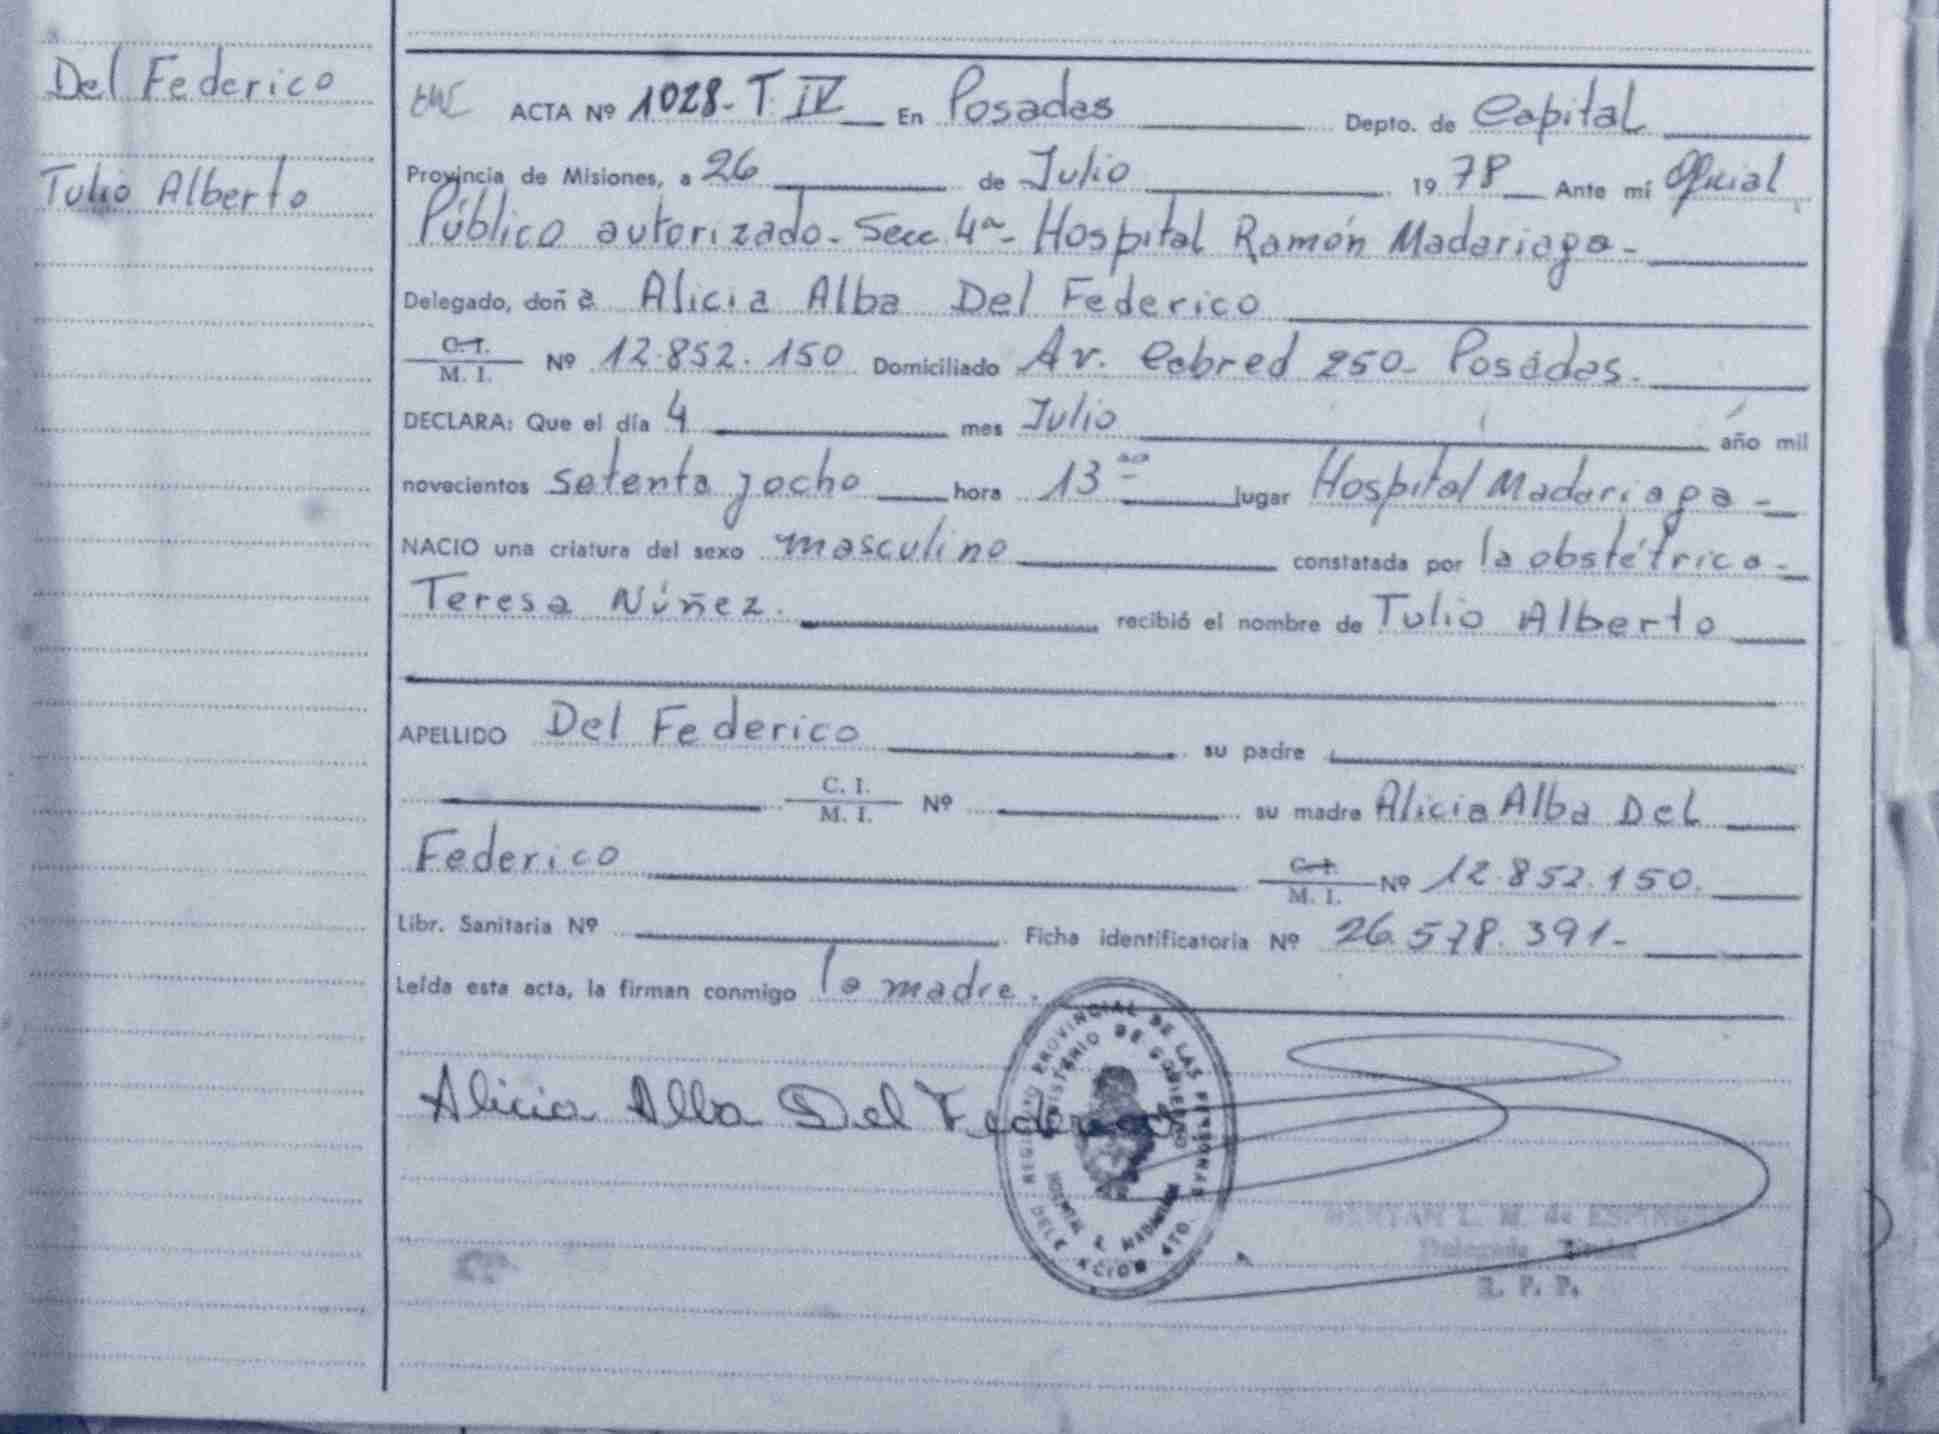 Del Federico
Tulio Alberto
ACTA Nº 1028 - T. IV En Posadas Depto. de Capital
Provincia de Misiones, a 26 de Julio 19 78 Ante mí Oficial
Público autorizado - Secc 4ª - Hospital Ramón Madariaga -
Delegado, doña Alicia Alba Del Federico
C. I. / M. I. Nº 12.852.150 Domiciliado Av. Cabred 250 - Posadas.
DECLARA: Que el día 4 mes Julio año mil
novecientos setenta y ocho hora 13 ºº lugar Hospital Madariaga -
NACIO una criatura del sexo masculino constatada por la obstétrica -
Teresa Núñez. recibió el nombre de Tulio Alberto
APELLIDO Del Federico su padre
C. I. / M. I. Nº su madre Alicia Alba Del
Federico C. I. / M. I. Nº 12.852.150.
Libr. Sanitaria Nº Ficha identificatoria Nº 26.578.391 -
Leída esta acta, la firman conmigo la madre.
Alicia Alba Del Federico
REGISTRO PROVINCIAL DE LAS PERSONAS
MINISTERIO DE GOBIERNO
HOSPITAL R. MADARIAGA
DELEGACION 4TO.
L. M. de
Delegada Titular
R. P. P.